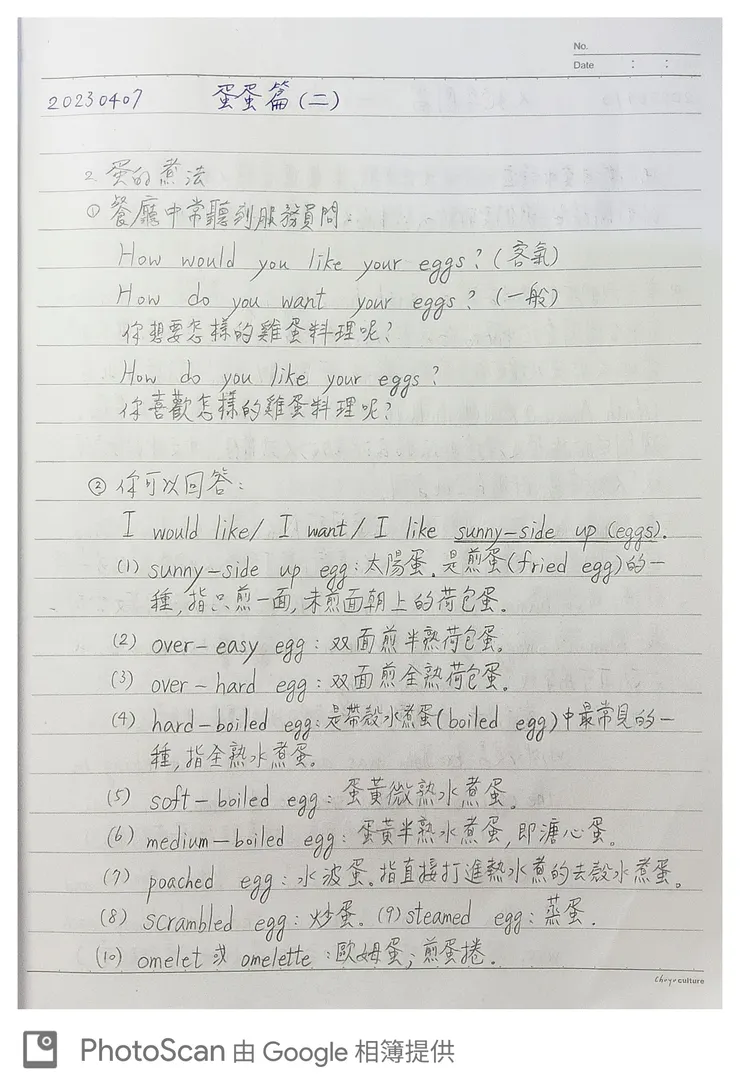 No.
Date : :
20230407 蛋蛋篇(二)
2. 蛋的煮法
① 餐廳中常聽到服務員問:
How would you like your eggs? (客氣)
How do you want your eggs? (一般)
你想要怎樣的雞蛋料理呢?
How do you like your eggs?
你喜歡怎樣的雞蛋料理呢?
② 你可以回答:
I would like/ I want/ I like sunny-side up (eggs).
(1) sunny-side up egg:太陽蛋。是煎蛋(fried egg)的一
種,指只煎一面,未煎面朝上的荷包蛋。
(2) over-easy egg:双面煎半熟荷包蛋。
(3) over-hard egg:双面煎全熟荷包蛋。
(4) hard-boiled egg:是帶殼水煮蛋(boiled egg)中最常見的一
種,指全熟水煮蛋。
(5) soft-boiled egg:蛋黃微熟水煮蛋。
(6) medium-boiled egg:蛋黃半熟水煮蛋,即溏心蛋。
(7) poached egg:水波蛋。指直接打進熱水煮的去殼水煮蛋。
(8) scrambled egg:炒蛋。(9) steamed egg:蒸蛋.
(10) omelet 或 omelette:歐姆蛋;煎蛋捲.
PhotoScan 由 Google 相簿提供